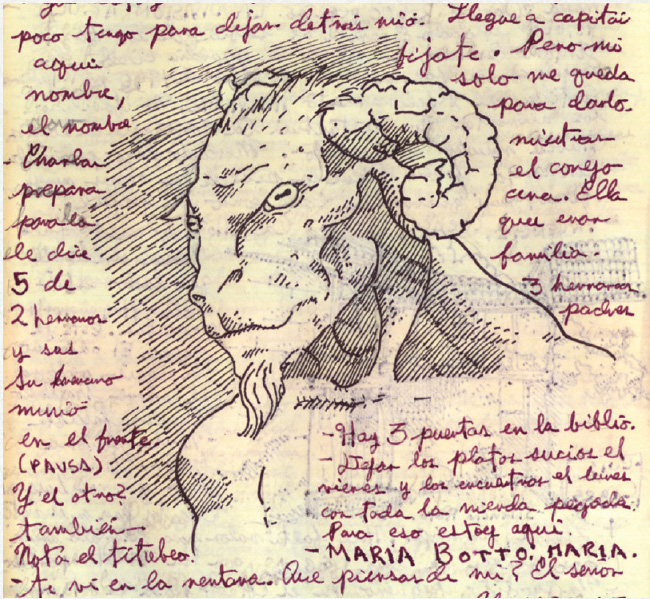 poco tengo para dejar detras mio. Llegue a
aqui fijate. Pero mi
nombre, solo me queda
el nombre para darlo.
- Charlan mientras
prepara el conejo
para la cena. Ella
le dice que eran
5 de familia.
2 hermanos 3 hermanas
y sus padres
Su hermano
murió
en el frente.
(PAUSA)
Y el otro?
también -
Nota el titubeo.
- Hay 3 puertas en la biblio.
- Dejar los platos sucios el
viernes y los encuentros el lunes
con toda la mierda pegada.
Para eso estoy aqui.
- MARIA BOTTO. MARIA.
- te vi en la ventana. Que piensas de mi? El senor